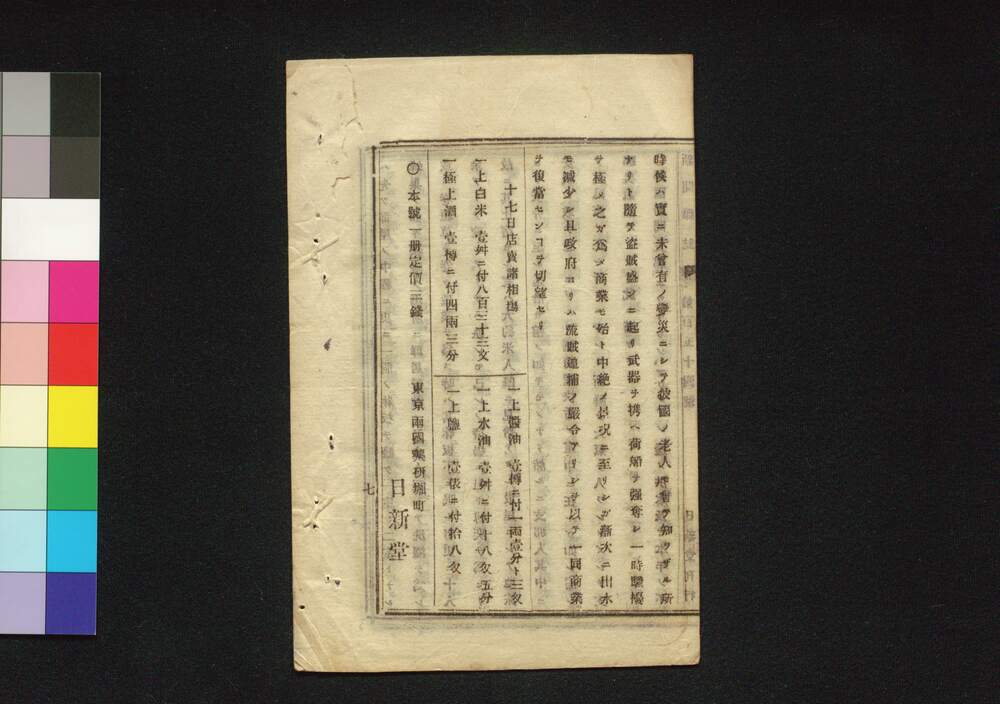 時候ハ實ニ未曾有ノ變災ニシテ彼國ノ老人モ知ラザル所
ナリト隨テ盗賊盛ンニ起リ武器ヲ携ヘ荷船ヲ强奪シ一時騷擾
ヲ極メ之カ爲メ商業モ殆ト中絶ノ景況ニ至リシカ漸次ニ出水
モ減少シ且政府ヨリハ流賊逮捕ノ嚴令アリシヲ以テ一同商業
ヲ復當センコヲ切望セリ
十七日店賣諸相塲
一上白米 壹舛ニ付八百三十三文
一極上酒 壹樽ニ付四兩三分
一上醬油 壹樽ニ付一兩壹分ト三匁
一上水油 壹舛ニ付十八匁五分
一上鹽 壹俵ニ付拾八匁
〇本號一册定價三錢
東京兩國藥硏堀町
日新堂
七